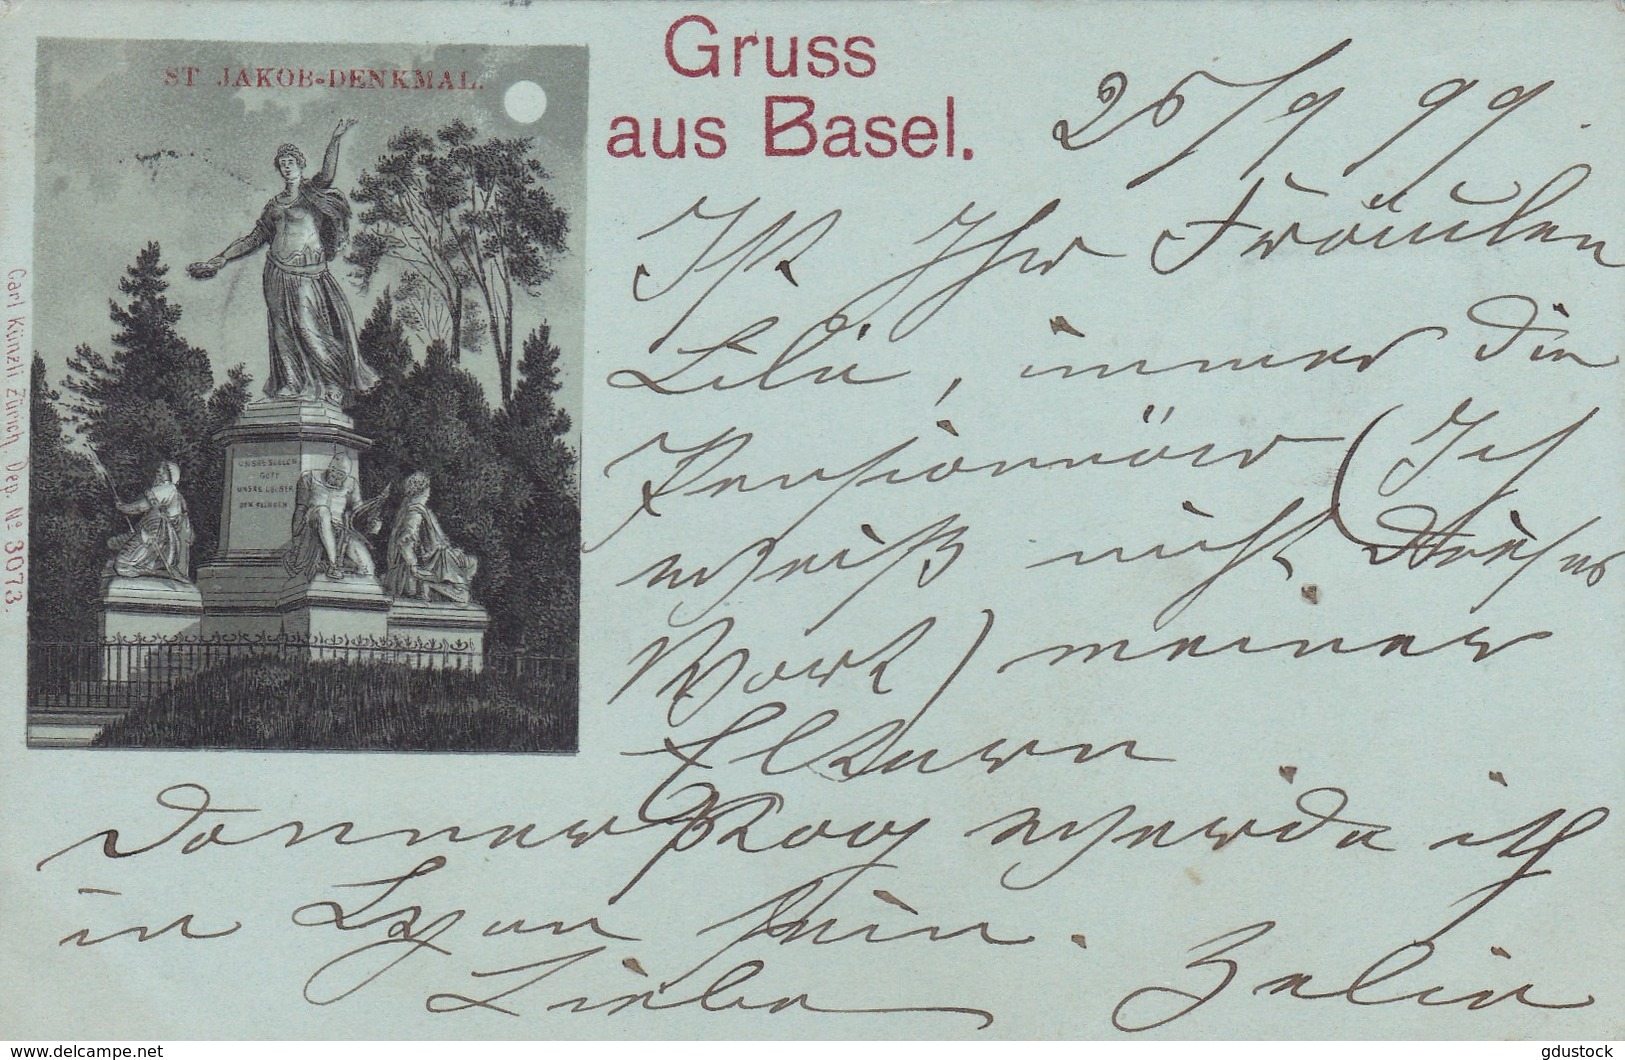 Gruss
aus Basel.
ST JAKOB-DENKMAL.
25/9 99.
Ist Ihr Fräulein
Lilü, immer die
Pensionnör (Ich
weiß nicht dieses
Wort) meiner
Eltern
Donnerstag werde ich
in Lyon sein.
Liebe
UNSRE SEELEN
GOTT
UNSRE LEIBER
DEN FEINDEN
Carl Künzli Zürich, Dep. No 3073.
delcampe.net
gdustock